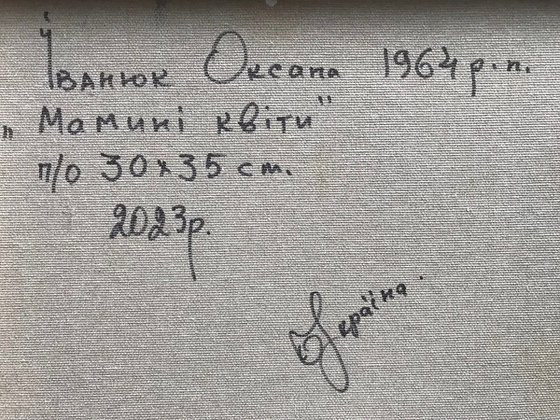 Іванюк Оксана 1964 р.н.
"Мамині квіти"
п/о 30х35 см.
2023р.
Україна.